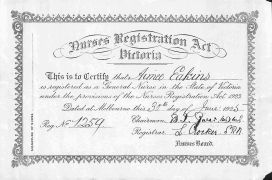 Nurses Registration Act
Victoria
This is to Certify that Aimee Eakins
is registered as a General Nurse in the State of Victoria
under the provisions of the Nurses Registration Act 1923
Dated at Melbourne this 30th day of June 1925
Reg No 1259
Chairman
Registrar
Nurses Board.